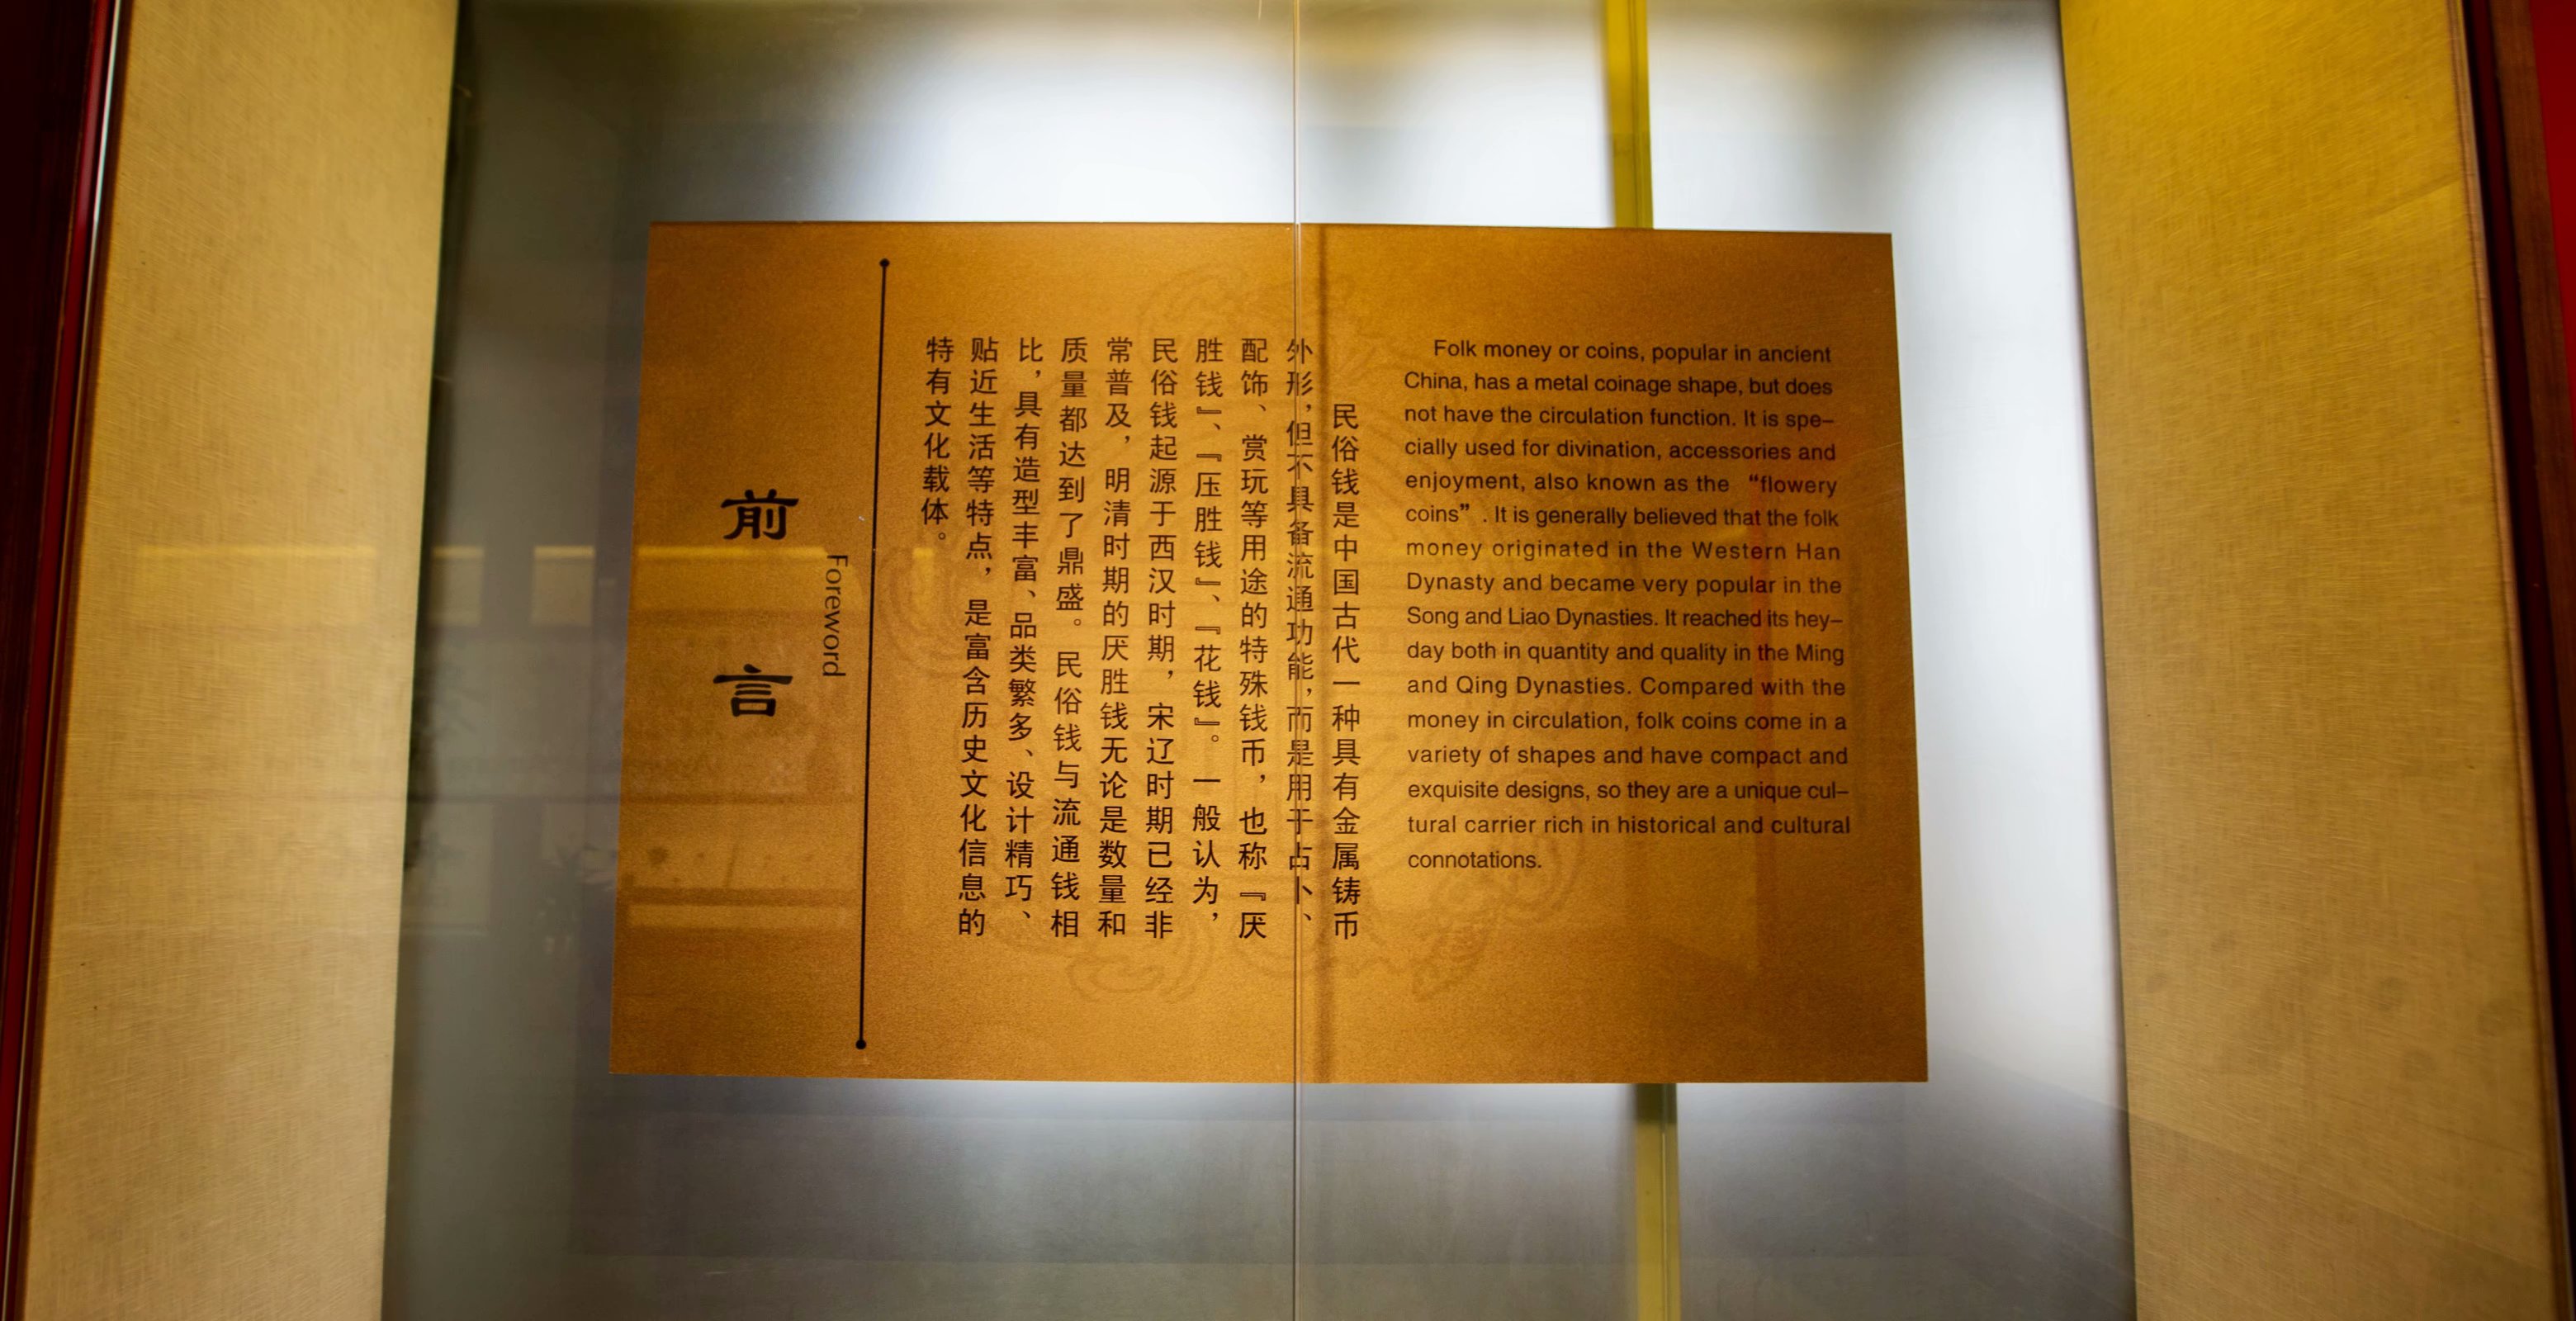 前言
Foreword
民俗钱是中国古代一种具有金属铸币
外形，但不具备流通功能，而是用于占卜、
配饰、赏玩等用途的特殊钱币，也称『厌
胜钱』、『压胜钱』、『花钱』。一般认为，
民俗钱起源于西汉时期，宋辽时期已经非
常普及，明清时期的厌胜钱无论是数量和
质量都达到了鼎盛。民俗钱与流通钱相
比，具有造型丰富、品类繁多、设计精巧、
贴近生活等特点，是富含历史文化信息的
特有文化载体。
Folk money or coins, popular in ancient
China, has a metal coinage shape, but does
not have the circulation function. It is spe–
cially used for divination, accessories and
enjoyment, also known as the “flowery
coins” . It is generally believed that the folk
money originated in the Western Han
Dynasty and became very popular in the
Song and Liao Dynasties. It reached its hey–
day both in quantity and quality in the Ming
and Qing Dynasties. Compared with the
money in circulation, folk coins come in a
variety of shapes and have compact and
exquisite designs, so they are a unique cul–
tural carrier rich in historical and cultural
connotations.